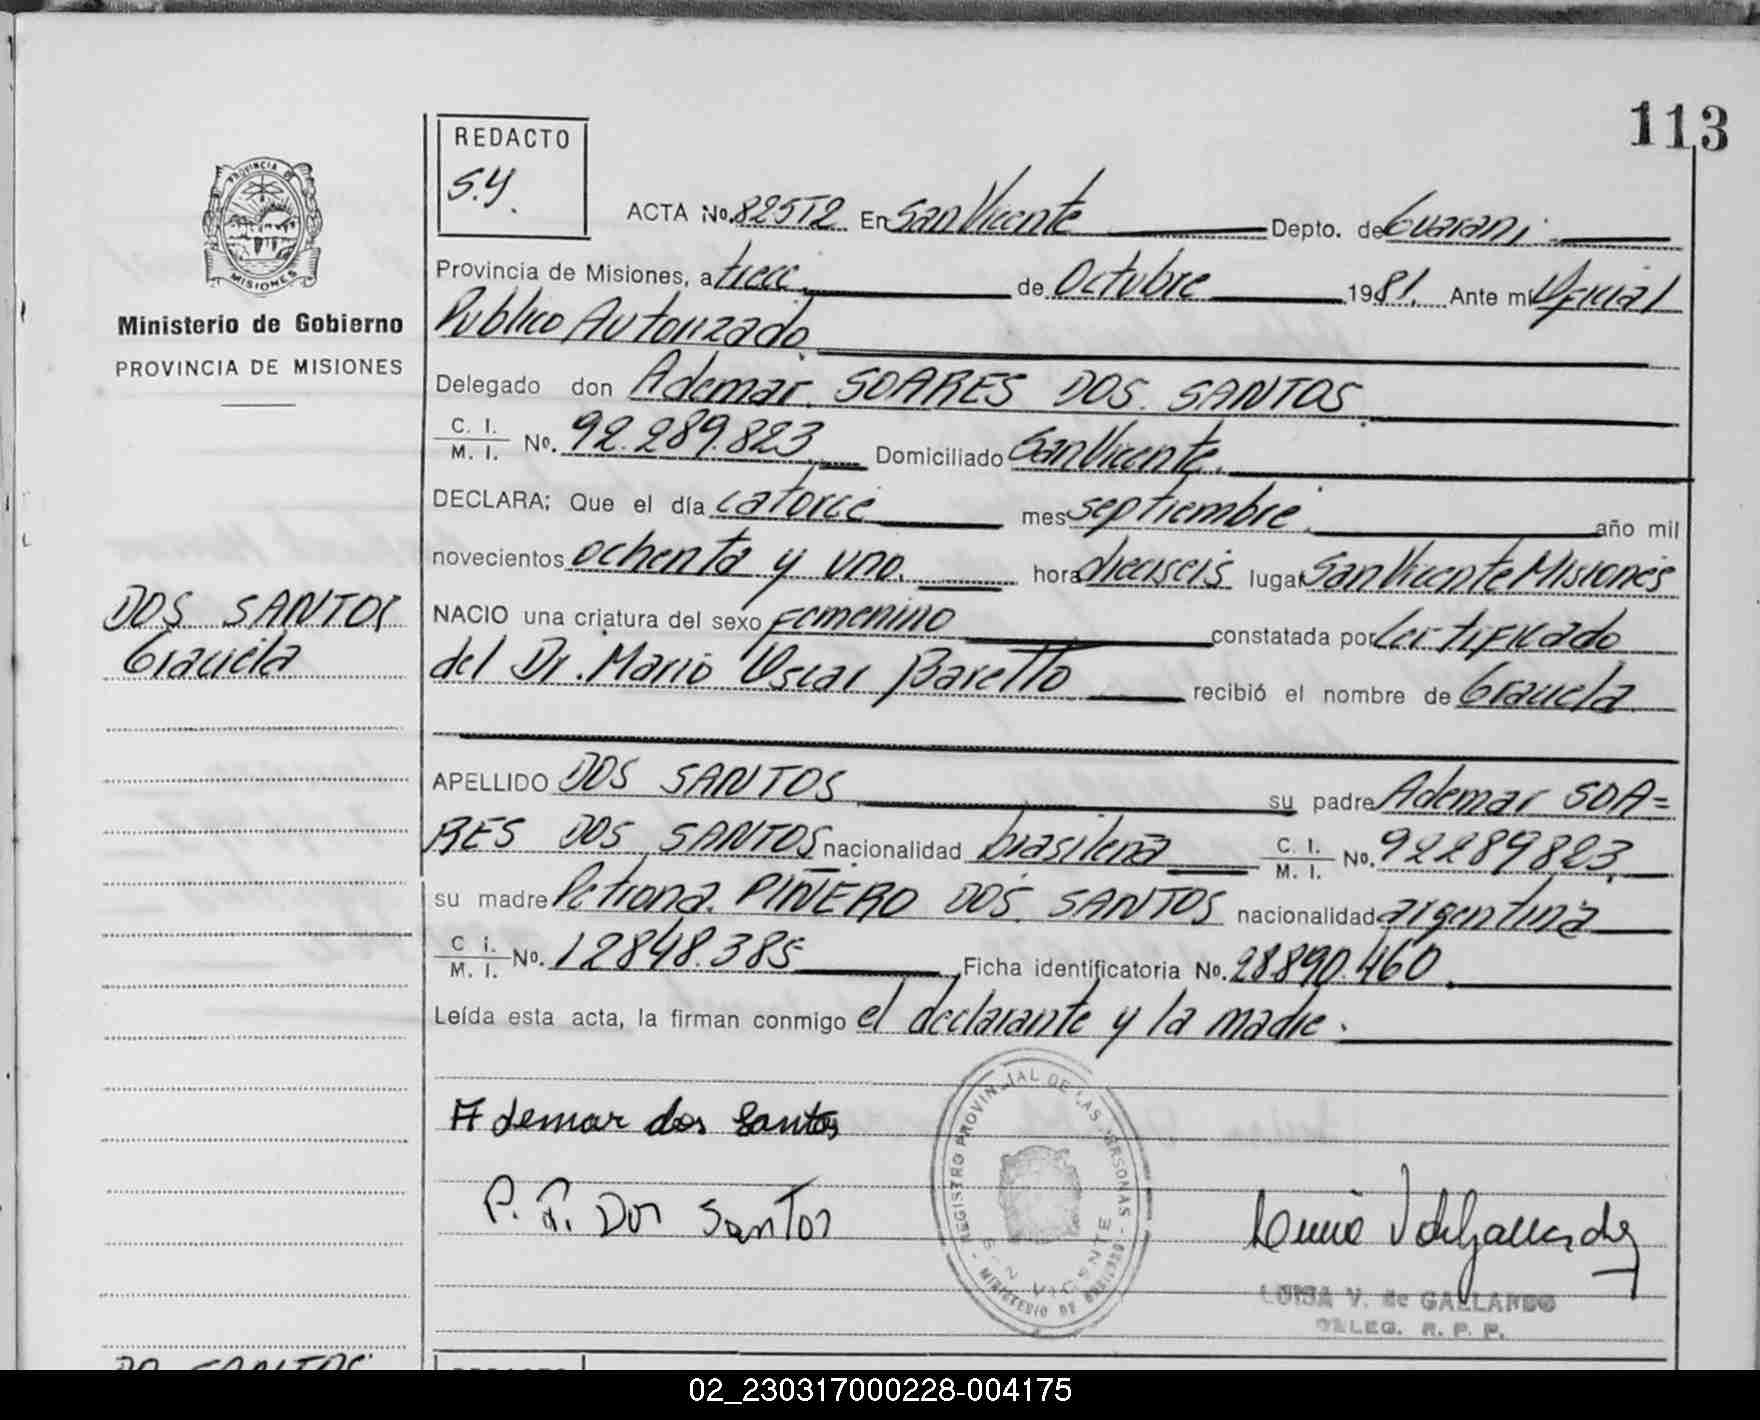 113
REDACTO
S.Y.
PROVINCIA DE
MISIONES
Ministerio de Gobierno
PROVINCIA DE MISIONES
ACTA No. 825T2 En San Vicente Depto. de Guarani
Provincia de Misiones, a trece de Octubre 1981. Ante mi Oficial
Publico Autorizado
Delegado don Ademar SOARES DOS SANTOS
C. I.
M. I. No. 92.289.823 Domiciliado San Vicente.
DECLARA: Que el día catorce mes septiembre año mil
novecientos ochenta y uno. hora dieciseis lugar San Vicente Misiones
DOS SANTOS
Graciela
NACIO una criatura del sexo femenino constatada por Certificado
del Dr. Mario Oscar Baretto recibió el nombre de Graciela
APELLIDO DOS SANTOS su padre Ademar SOA=
RES DOS SANTOS nacionalidad brasilena C. I.
M. I. No. 92289823.
su madre Petrona PIÑERO DOS SANTOS nacionalidad argentina
C. I.
M. I. No. 12848.385 Ficha identificatoria No. 28890.460
Leída esta acta, la firman conmigo el declarante y la madre.
Ademar dos Santos
P. P. Dos Santos
REGISTRO PROVINCIAL DE LAS PERSONAS
SAN VICENTE
MINISTERIO DE GOBIERNO
LUISA V. de GALLARDO
DELEG. R. P. P.
DO SANTOS
02_230317000228-004175